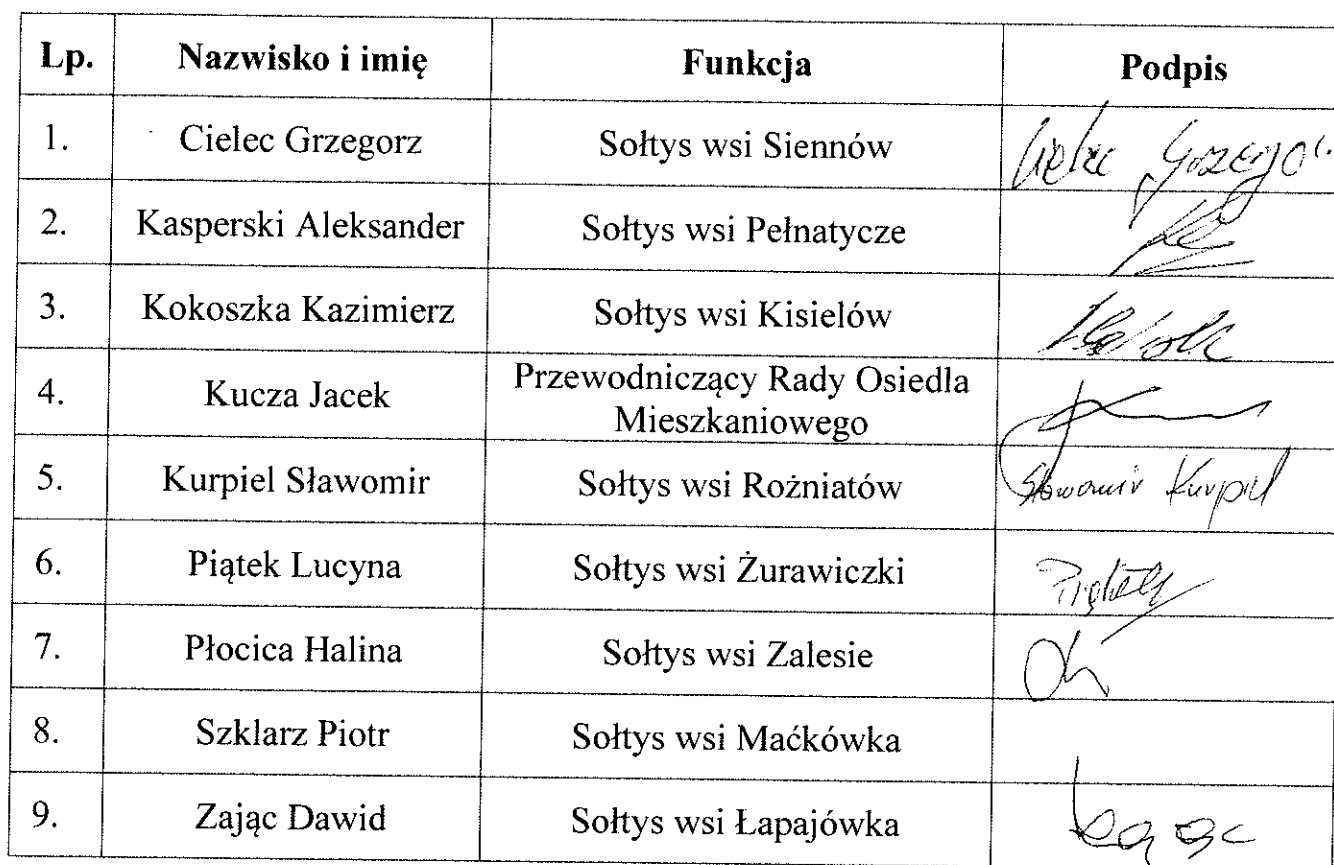 Lp. Nazwisko i imię Funkcja Podpis
1. Cielec Grzegorz Sołtys wsi Siennów
2. Kasperski Aleksander Sołtys wsi Pełnatycze
3. Kokoszka Kazimierz Sołtys wsi Kisielów
4. Kucza Jacek Przewodniczący Rady Osiedla
Mieszkaniowego
5. Kurpiel Sławomir Sołtys wsi Rożniatów Sławomir Kurpiel
6. Piątek Lucyna Sołtys wsi Żurawiczki
7. Płocica Halina Sołtys wsi Zalesie
8. Szklarz Piotr Sołtys wsi Maćkówka
9. Zając Dawid Sołtys wsi Łapajówka